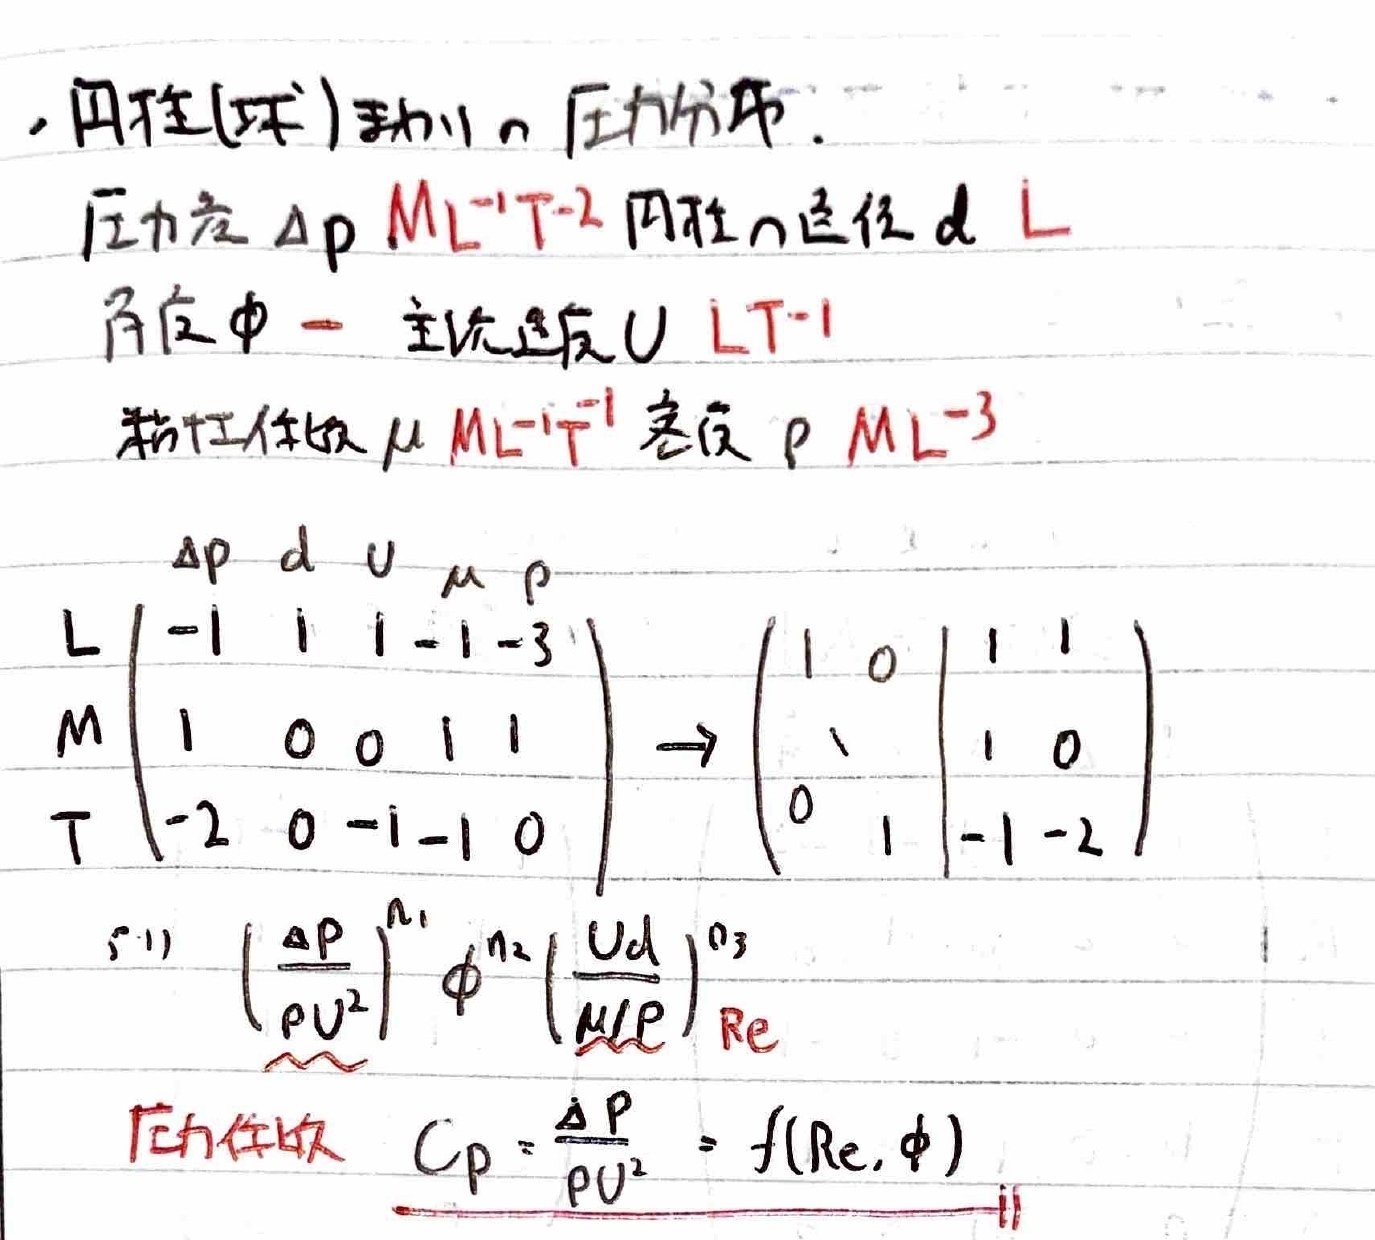 ・円柱(球)まわりの圧力分布.
圧力差 Δp ML⁻¹T⁻² 円柱の直径 d L
角度 φ − 主流速度 U LT⁻¹
粘性係数 μ ML⁻¹T⁻¹ 密度 ρ ML⁻³
Δp d U μ ρ
L -1 1 1 -1 -3 → 1 0 | 1 1
M 1 0 0 1 1 1 | 1 0
T -2 0 -1 -1 0 0 1 | -1 -2
より (Δp/ρU²)^n₁ φ^n₂ (Ud/(μ/ρ))^n₃ Re
圧力係数 Cp = Δp/ρU² = f(Re, φ)